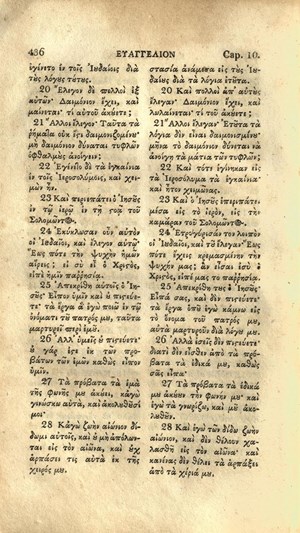 436 ΕΥΑΓΓΕΛΙΟΝ Cap. 10.
ἐγένετο ἐν τοῖς Ἰουδαίοις διὰ
τοὺς λόγους τούτους.
20 Ἔλεγον δὲ πολλοὶ ἐξ
αὐτῶν· Δαιμόνιον ἔχει, καὶ
μαίνεται· τί αὐτοῦ ἀκούετε;
21 Ἄλλοι ἔλεγον· Ταῦτα τὰ
ῥήματα οὐκ ἔςι δαιμονιζομένου·
μὴ δαιμόνιον δύναται τυφλῶν
ὀφθαλμοὺς ἀνοίγειν;
22 Ἐγένετο δὲ τὰ ἐγκαίνια
ἐν τοῖς Ἱεροσολύμοις, καὶ χει-
μὼν ἦν.
23 Καὶ περιεπάτει ὁ Ἰησοῦς
ἐν τῷ ἱερῷ ἐν τῇ ςοᾷ τοῦ
Σολομῶντος.
24 Ἐκύκλωσαν οὖν αὐτὸν
οἱ Ἰουδαῖοι, καὶ ἔλεγον αὐτῷ·
Ἕως πότε τὴν ψυχὴν ἡμῶν
αἴρεις; εἰ σὺ εἶ ὁ Χριστὸς,
εἰπὲ ἡμῖν παῤῥησίᾳ.
25 Ἀπεκρίθη αὐτοῖς ὁ Ἰη-
σοῦς· Εἶπον ὑμῖν καὶ οὐ πιςεύε-
τε· τὰ ἔργα ἃ ἐγὼ ποιῶ ἐν τῷ
ὀνόματι τοῦ πατρός μου, ταῦτα
μαρτυρεῖ περὶ ἐμοῦ.
26 Ἀλλ' ὑμεῖς οὐ πιςεύετε·
οὐ γάρ ἐςε ἐκ τῶν προ-
βάτων τῶν ἐμῶν καθὼς εἶπον
ὑμῖν.
27 Τὰ πρόβατα τὰ ἐμὰ
τῆς φωνῆς μου ἀκούει, κἀγὼ
γινώσκω αὐτά, καὶ ἀκολουθοῦσί
μοι·
28 Κἀγὼ ζωὴν αἰώνιον δί-
δωμι αὐτοῖς, καὶ οὐ μὴ ἀπόλων-
ται εἰς τὸν αἰῶνα, καὶ οὐχ
ἁρπάσει τις αὐτὰ ἐκ τῆς
χειρός μου.
στασία ἀνάμεσα εἰς τοὺς Ἰου-
δαίους διὰ τὰ λόγια ἐτοῦτα.
20 Καὶ πολλοὶ ἀπ' αὐτοὺς
ἔλεγαν· Δαιμόνιον ἔχει, καὶ
λωλαίνεται· τί τοῦ ἀκούετε;
21 Ἄλλοι ἔλεγαν· Ἐτοῦτα τὰ
λόγια δὲν εἶναι δαιμονισμένου·
μήνα τὸ δαιμόνιον δύναται νὰ
ἀνοίγῃ τὰ μάτια τῶν τυφλῶν;
22 Καὶ τότε ἐγίνηκαν εἰς
τὰ Ἱεροσόλυμα τὰ ἐγκαίνια·
καὶ ἦτον χειμῶνας.
23 Καὶ ὁ Ἰησοῦς ἐπεριπάτει
μέσα εἰς τὸ ἱερὸν, εἰς τὴν
καμάραν τοῦ Σολομῶντος.
24 Ἐτρογύρισάν τον λοιπὸν
οἱ Ἰουδαῖοι, καὶ τοῦ ἔλεγαν· Ἕως
πότε ἔχεις κρεμασμένην τὴν
ψυχήν μας; ἂν εἶσαι ἐσὺ ὁ
Χριστὸς, εἰπέ μας το παῤῥησίᾳ.
25 Ἀπεκρίθη τους ὁ Ἰησοῦς·
Εἶπά σας, καὶ δὲν πιςεύετε·
τὰ ἔργα ὁποῦ ἐγὼ κάμνω εἰς
τὸ ὄνομα τοῦ πατρός μου,
αὐτὰ μαρτυροῦν διὰ λόγου μου.
26 Ἀλλὰ ἐσεῖς δὲν πιςεύετε·
διατὶ δὲν εἶσθεν ἀπὸ τὰ πρό-
βατα τὰ ἐδικά μου, καθὼς
σᾶς εἶπα·
27 Τὰ πρόβατα τὰ ἐδικά
μου ἀκούουν τὴν φωνήν μου· καὶ
ἐγὼ τὰ γνωρίζω, καὶ μοῦ ἀκο-
λουθοῦν.
28 Καὶ ἐγὼ τῶν δίδω ζωὴν
αἰώνιον, καὶ δὲν θέλουν χα-
λασθῆ εἰς τὸν αἰῶνα· καὶ
κανένας δὲν θέλει τὰ ἁρπάξει
ἀπὸ τὰ χέριά μου.